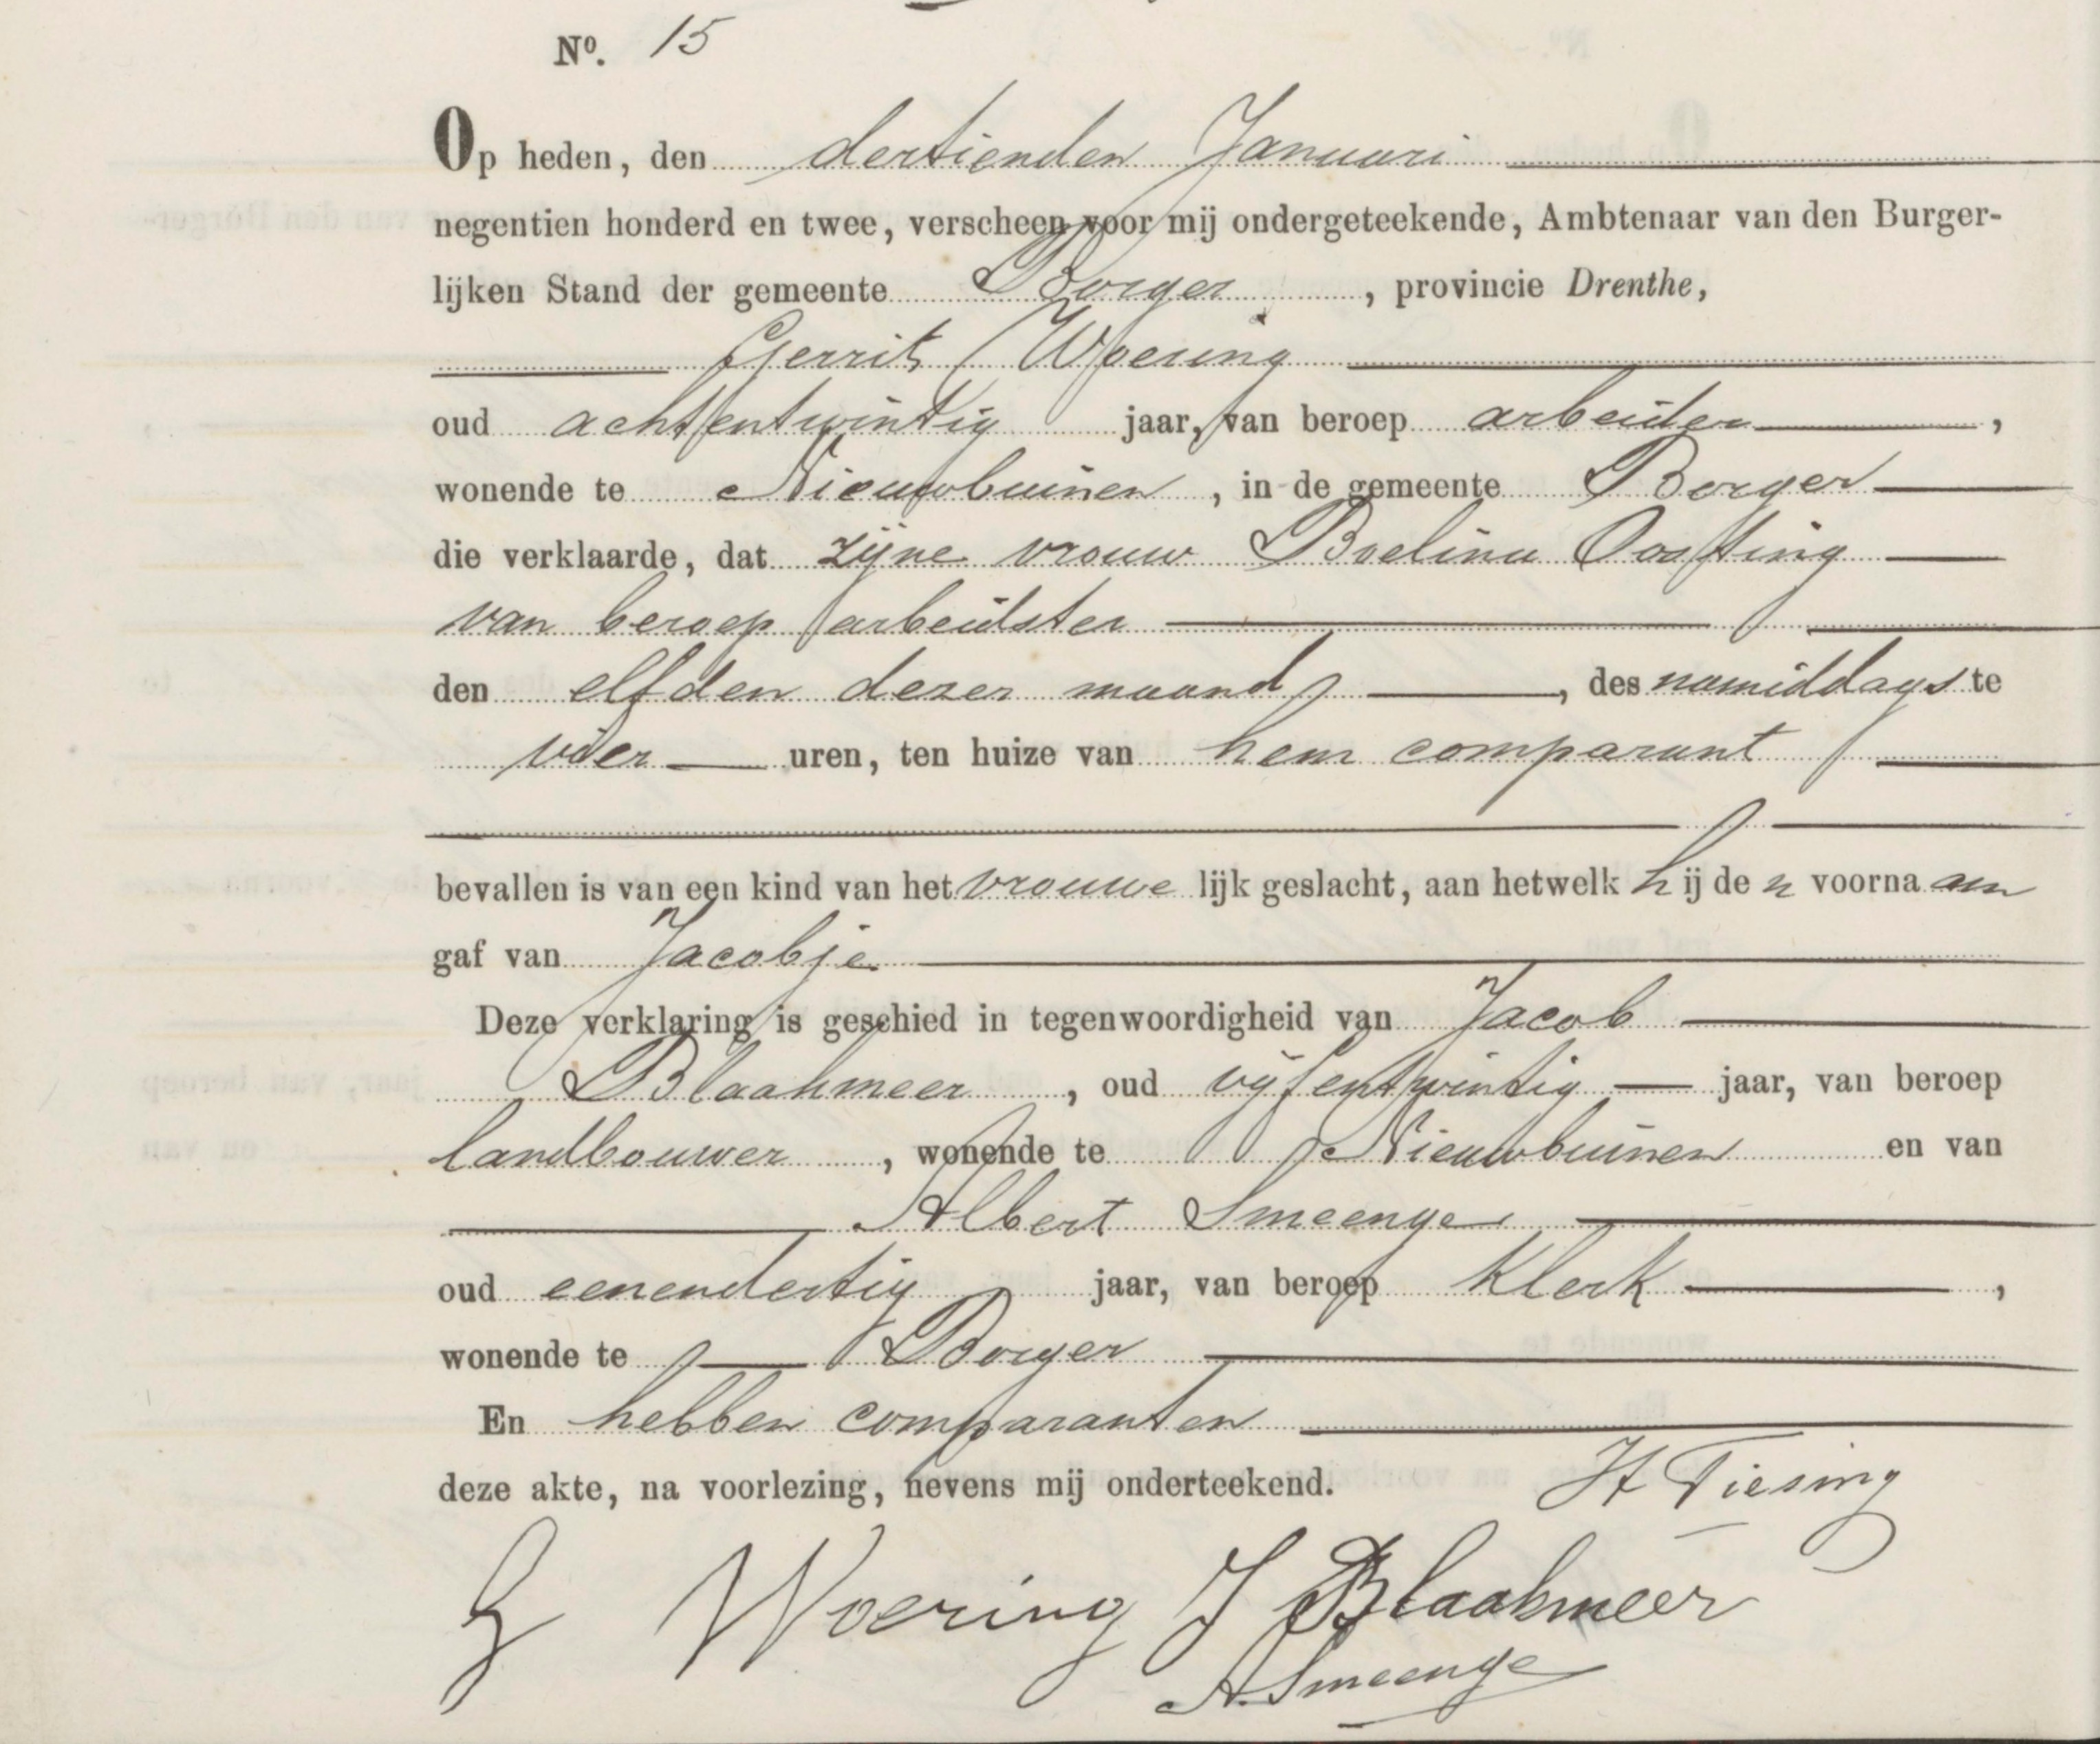 Nº. 15
Op heden, den dertienden Januari
negentien honderd en twee, verscheen voor mij ondergeteekende, Ambtenaar van den Burger-
lijken Stand der gemeente Borger, provincie Drenthe,
Gerrit Woering
oud achtentwintig jaar, van beroep arbeider,
wonende te Nieuwbuinen, in de gemeente Borger
die verklaarde, dat zijne vrouw Boelina Oosting
van beroep arbeidster
den elfden dezer maand, des namiddags te
vier uren, ten huize van hem comparant
bevallen is van een kind van het vrouwelijk geslacht, aan hetwelk hij den voornaam
gaf van Jacobje
Deze verklaring is geschied in tegenwoordigheid van Jacob
Blaakmeer, oud vijfentwintig jaar, van beroep
landbouwer, wonende te Nieuwbuinen en van
Albert Smeenge
oud eenendertig jaar, van beroep klerk,
wonende te Borger
En hebben comparanten
deze akte, na voorlezing, nevens mij onderteekend. H Tiesing
G Woering J Blaakmeer
A. Smeenge